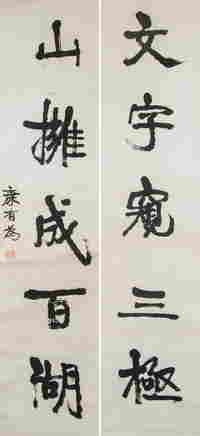 文字窺三極
山擁成百湖
康有為